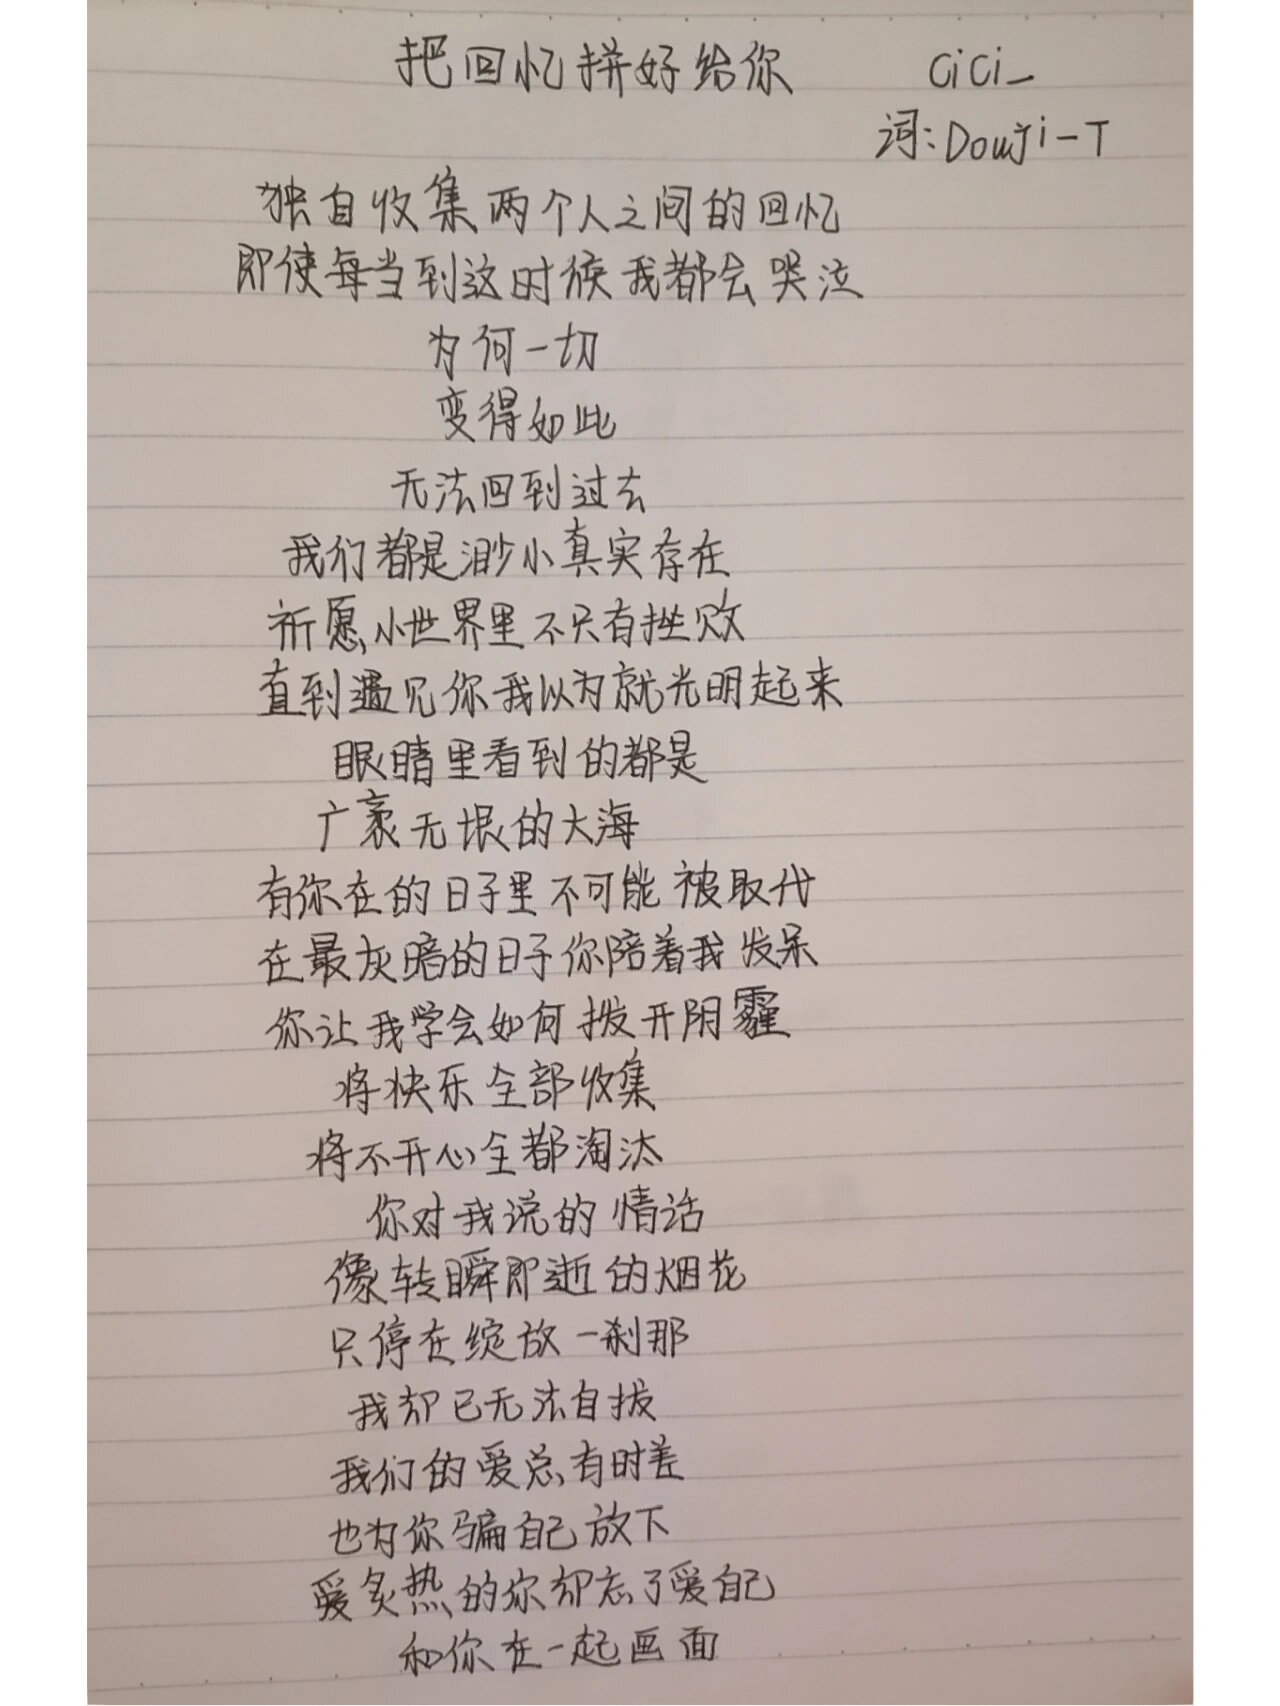 把回忆拼好给你 CiCi_
词:Douyi-T
独自收集两个人之间的回忆
即使每当到这时候我都会哭泣
为何一切
变得如此
无法回到过去
我们都是渺小真实存在
祈愿小世界里不只有挫败
直到遇见你我以为就光明起来
眼睛里看到的都是
广袤无垠的大海
有你在的日子里不可能被取代
在最灰暗的日子你陪着我发呆
你让我学会如何拨开阴霾
将快乐全部收集
将不开心全都淘汰
你对我说的情话
像转瞬即逝的烟花
只停在绽放一刹那
我却已无法自拔
我们的爱总有时差
也为你骗自己放下
爱炙热的你却忘了爱自己
和你在一起画面